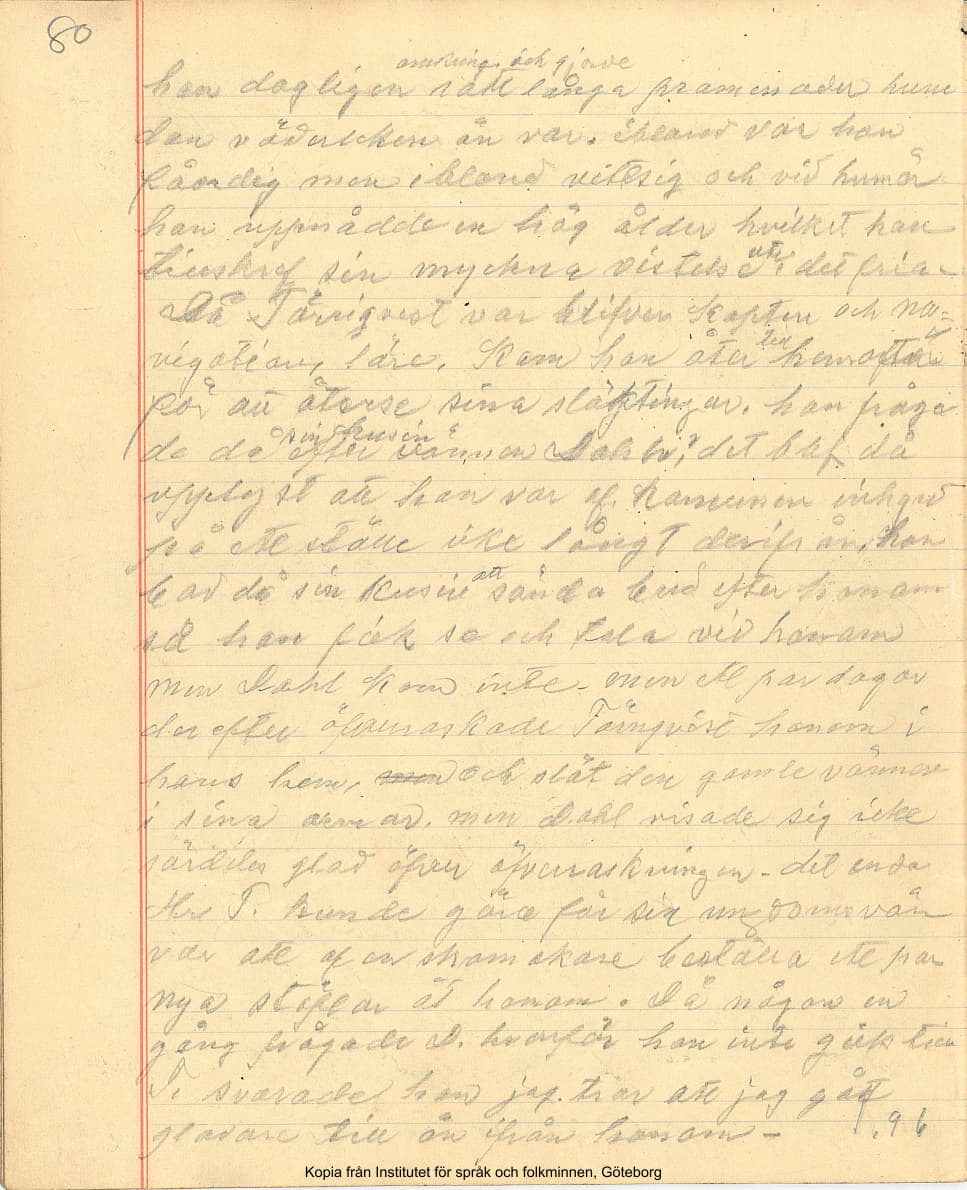 80
och gjorde
han dagligen rätt långa promenader huru
dan väderleken än var. ibland var han
fåordig men ibland vittsig och vid humör
han uppnådde en hög ålder hvilket han
tillskref sin myckna vistelse ute i det fria -
Då Törnqvist var blifven Kapten och na=
vigations, läre, Kom han åter till hemorten
för att återse sina släktingar. han fråga
de då sin kusin efter vännen Dahl, det blef då
upplyst att han var af Kommunen inhyst
på ett ställe icke långt derifrån, han
bad då sin Kusin att sända bud efter honom
så han fick se och tala vid honom
men Dahl Kom inte - men ett par dagar
der efter öfverraskade Törnqvist honom i
hans hem, men och slöt den gamle vännen
i sina armar. men Dahl visade sig icke
särdeles glad öfver öfverraskningen - det enda
Hr T. kunde göra för sin ungdomsvän
var att af en skomakare beställa ett par
nya stöflar åt honom. Då någon en
gång frågade D. hvarför han inte gick till
T. svarade han jag tror att jag gått
gladare till än ifrån honom - 1.96
Kopia från Institutet för språk och folkminnen, Göteborg